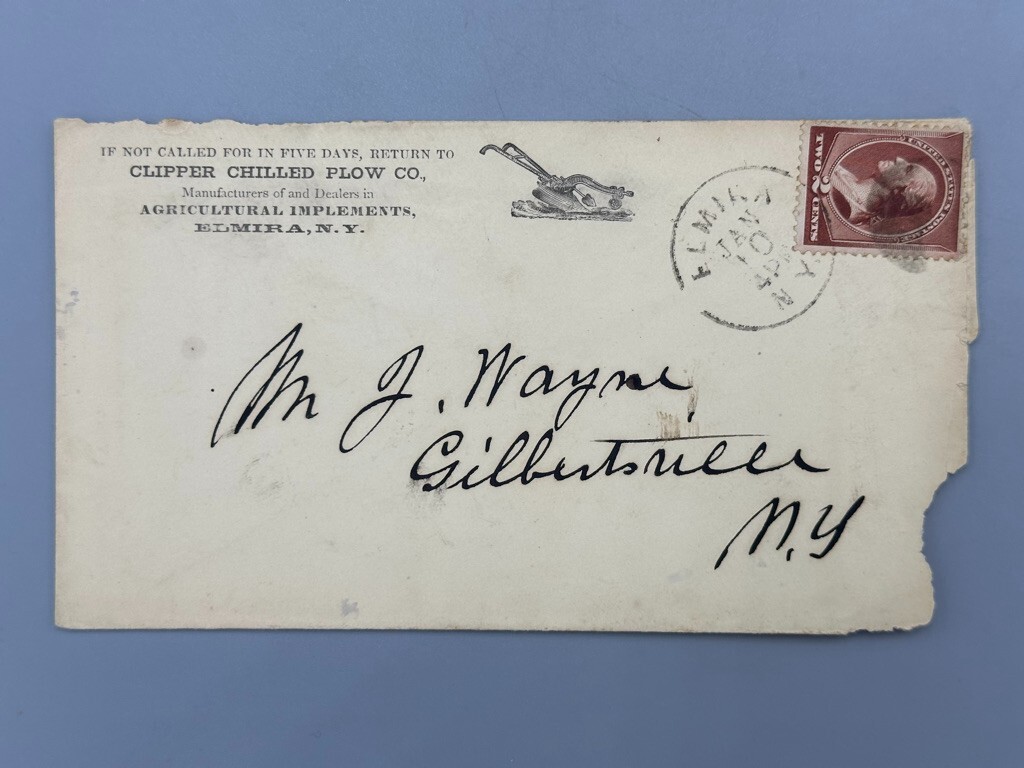 IF NOT CALLED FOR IN FIVE DAYS, RETURN TO
CLIPPER CHILLED PLOW CO.,
Manufacturers of and Dealers in
AGRICULTURAL IMPLEMENTS,
ELMIRA, N.Y.
ELMIRA
JAN
10
4PM
N.Y.
UNITED STATES POSTAGE
TWO 2 CENTS
Mr J. Wayne,
Gilbertsville
N.Y